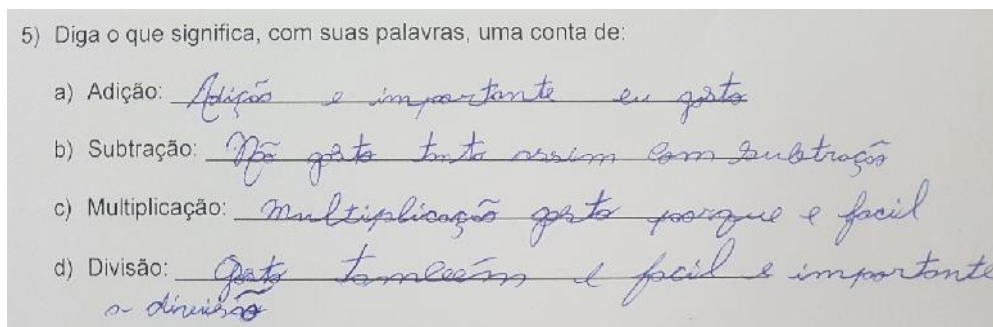 5) Diga o que significa, com suas palavras, uma conta de:
a) Adição: Adição e importante eu gosto
b) Subtração: Não gosto tanto assim com Subtração
c) Multiplicação: multiplicação gosto porque e facil
d) Divisão: Gosto também e facil e importante
a divisão